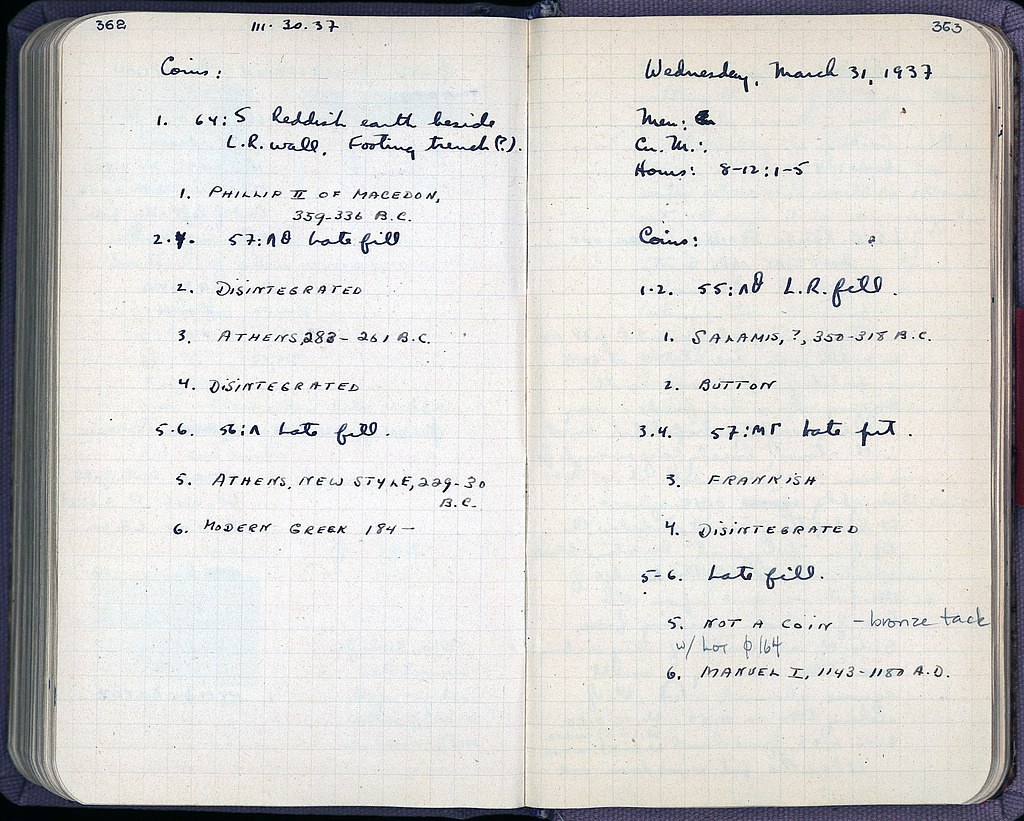 362
III. 30. 37
Coins:
1. 64:S Reddish earth beside
L.R. wall. Footing trench (?).
1. PHILLIP II OF MACEDON,
359-336 B.C.
2. 57:ΛΘ Late fill
2. DISINTEGRATED
3. ATHENS, 283-261 B.C.
4. DISINTEGRATED
5-6. 56:Λ Late fill.
5. ATHENS, NEW STYLE, 229-30
B.C.
6. MODERN GREEK 184-
363
Wednesday, March 31, 1937
Men:
Cu. M.:
Hours: 8-12:1-5
Coins:
1-2. 55:ΛΘ L.R. fill.
1. SALAMIS, ?, 350-318 B.C.
2. BUTTON
3.4. 57:ΜΓ Late pit.
3. FRANKISH
4. DISINTEGRATED
5-6. Late fill.
5. NOT A COIN - bronze tack
w/ Lot 164
6. MANUEL I, 1143-1180 A.D.